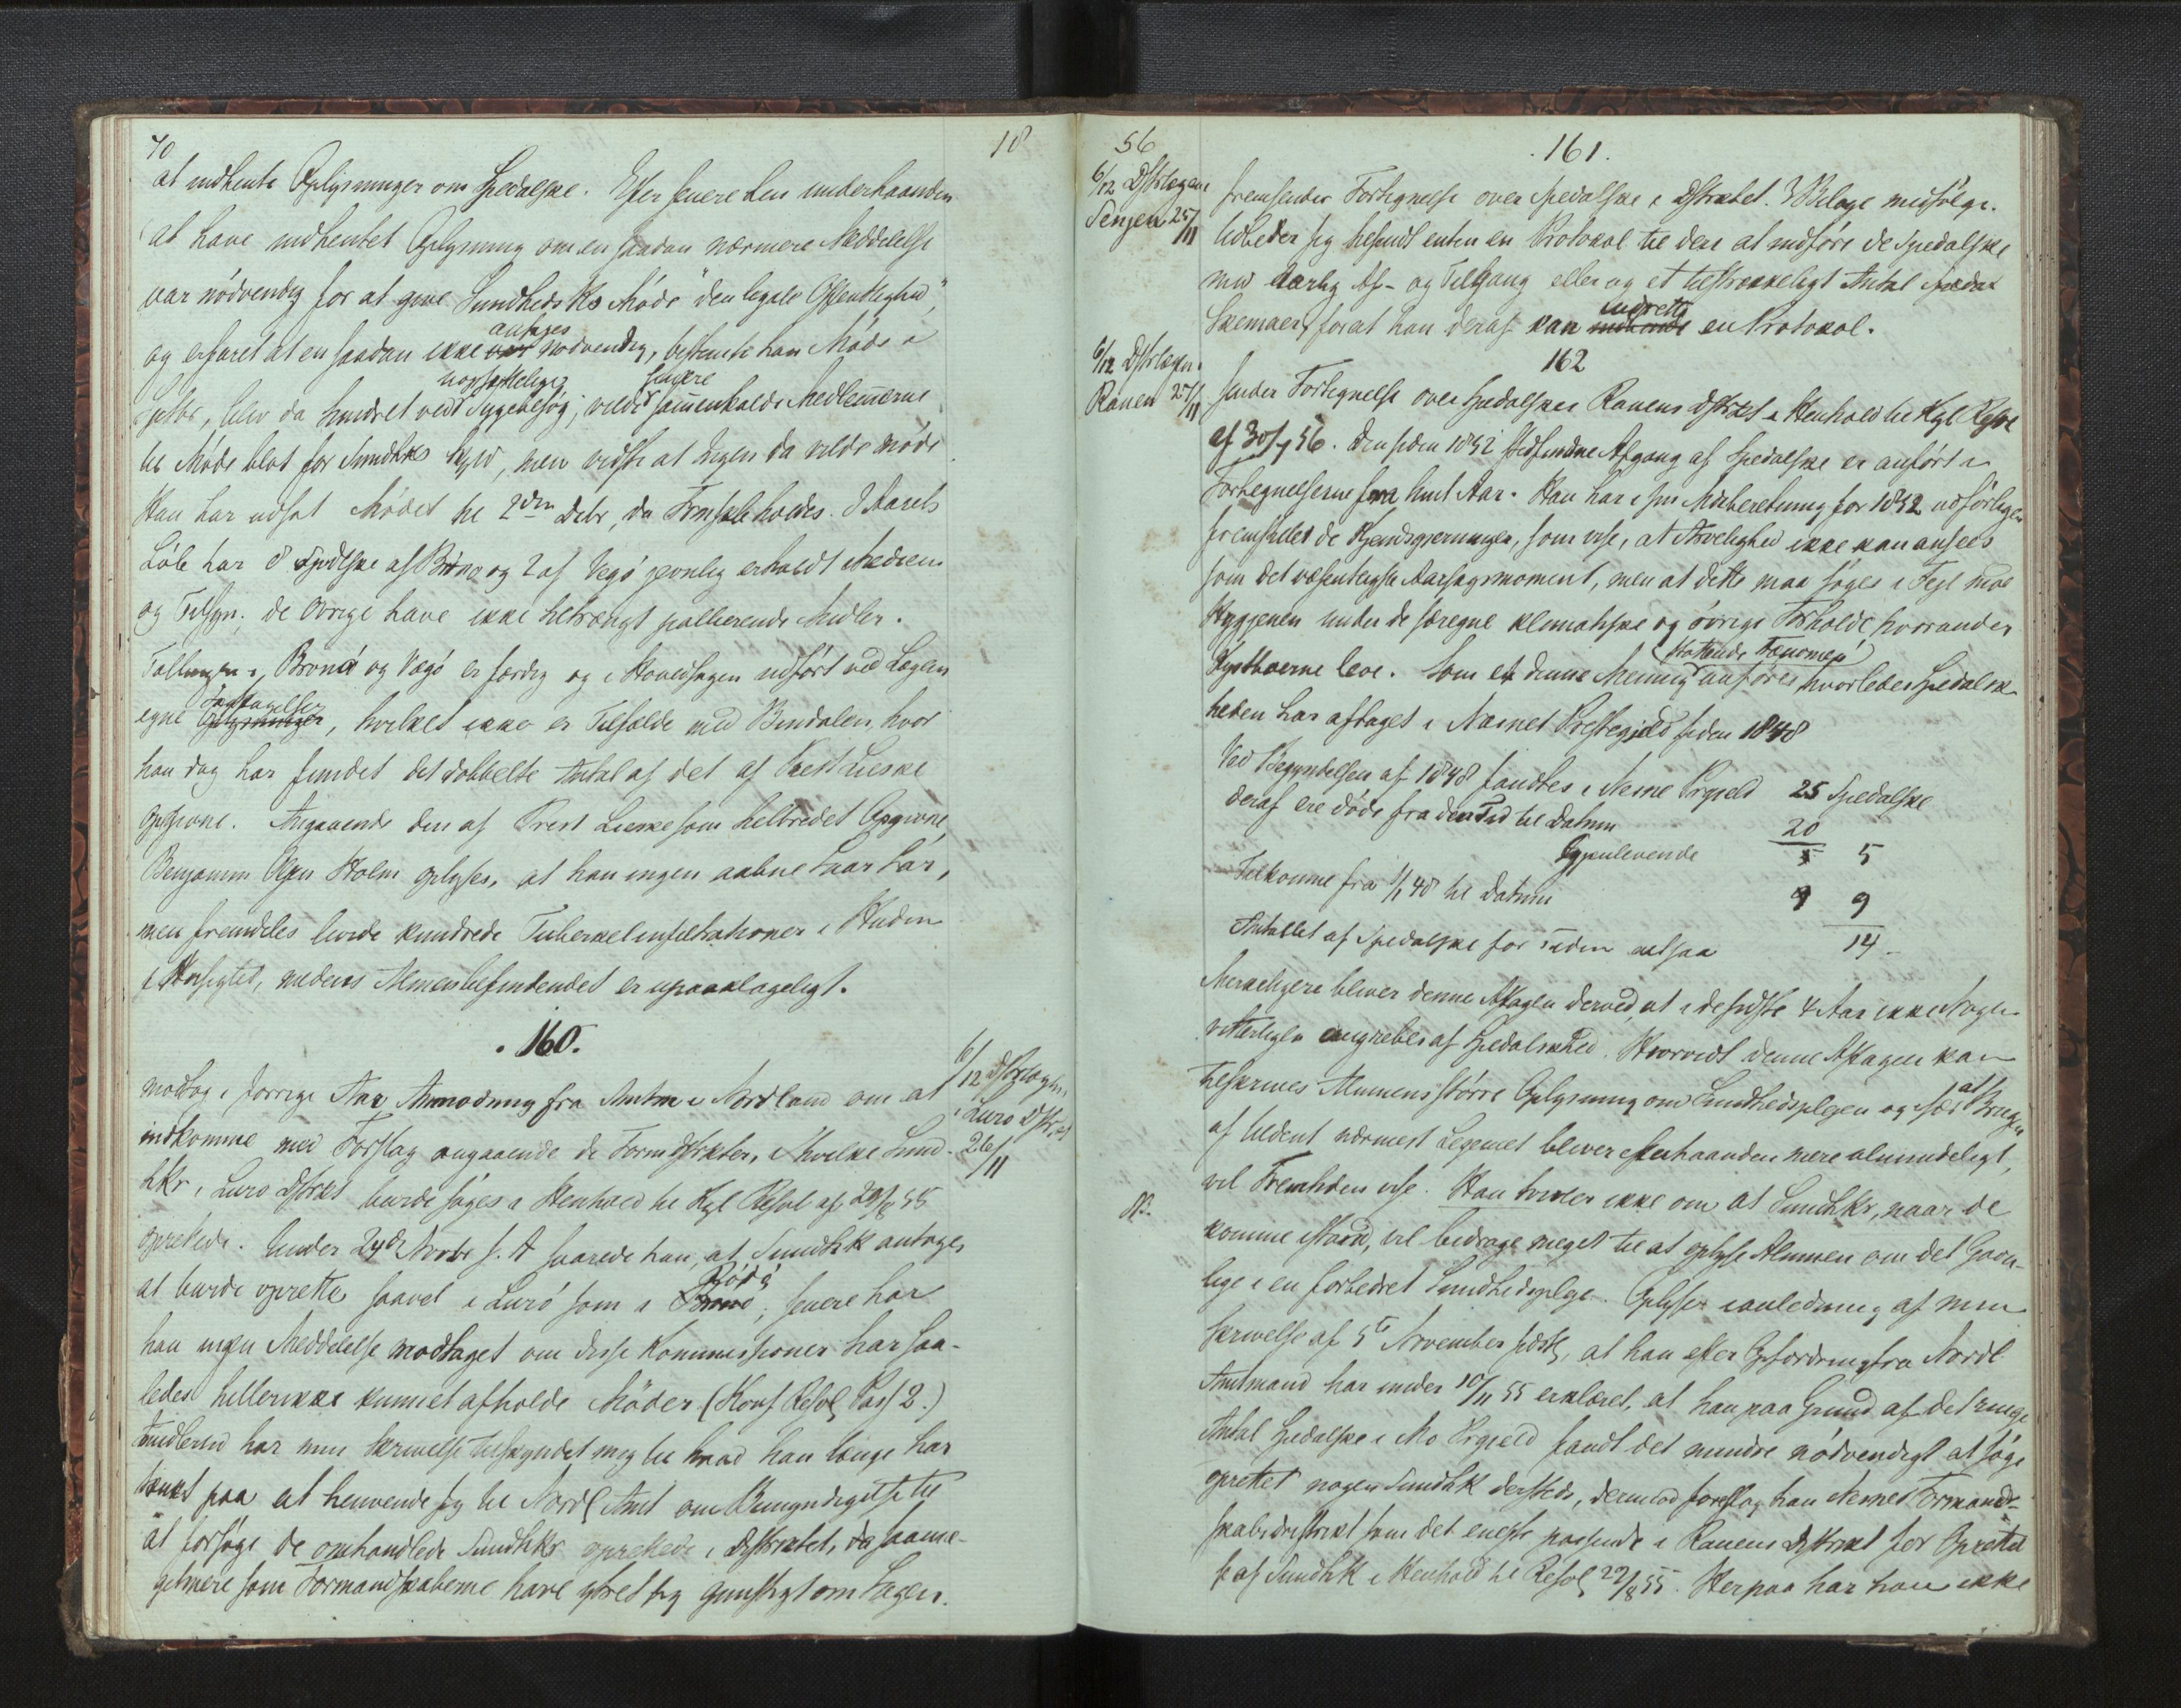 70
18
at indhente Oplysninger om Spedalske. Efter senere hen underhaanden
at have indhentet Oplysning om en saadan nærmere Meddelelse
var nödvendig for at give Sundheds Ks Möde "den legale Offentlighed",
og erfaret at en saadan ikke antages nödvendig, bestemte han Möde i
Septbr, blev da hindret ved uopsættelige Sygebesög; vilde senere sam̄enkalde Medlem̄erne
til Möde blot for Sundhks Skyld, men vidste at Ingen da vilde möde
Han har udsat Mödet til 2den Debr, da Formsskb holdes. I Aarets
Löb har 8 Spedlske af Brönö og 2 af Vegö jevnlig erholdt Medicin
og Tilsyn; de Övrige have ikke tiltrængt pallierende Midler.
Tællingen i Brönö og Vegö er færdig og i Hovedsagen udfört ved Lægens
egne Iagttagelser, hvilket ikke er Tilfælde med Bindalen, hvor
han dog har fundet det dobbelte Antal af det af Præst Lieske
opgivne. Angaaende den af Prest Lieske som helbredet Opgivne
Benjamin Olsen Holm oplyses, at han ingen aabne Saar har,
men fremdeles havde hundrede Tuberkelinfiltrationer i Huden
i Ansigtet, medens Almenbefindendet er upaaklageligt.
. 160.
6/12 Dstrlægen
i Lurö Dstrct
26/11
modtog i forrige Aar Anmodning fra Amtm i Nordland om at
indkomme med Forslag angaaende de Formdstrkter, i hvilke Sund-
hkr i Lurö Dstrkt burde söges i Henhold til Kgl Resol af 29/8 55
oprettede. Under 24de Novbr f. A svarede han, at Sundhk antages
at burde oprettes saavel i Lurö som i Rödö; senere har
han ingen Meddelelse modtaget om disse Kommissioner har saa-
ledes heller ikke kunnet afholde Möder (Konf Resol, Pass 2.)
Imidlertid har min Skrivelse tilskyndet mig til hvad han længe har
tænkt paa at henvende sig til Nordl Amt om Bemyndigelse til
at forsöge de omhandlede Sundhkr oprettede i Dstrktet, da saame-
getmere som Formandskaberne have ytret sig gunstigt om Sagen.
56
. 161.
6/12 Dstrlægen
Senjen 25/11
fremsender Fortegnelse over spedalske i Dstrktet. 3 Bilage medfölge.
Udbeder sig tilsendt enten en Protokol til deri at indföre de Spedalske
med aarlig Af- og Tilgang eller og et tilstrækkeligt Antal
Skemaer, forat han deraf kan indrette en Protokol.
162
6/12 Dstrlægen
Ranen 27/11
sender Fortegnelse over Spedalske i Ranens Dstrkt i Henhold til Kgl Resol
af 30/7 56. Den siden 1852 stedfundne Afgang af Spedalske er anfört i
Fortegnelserne fra hvert Aar. Han har i sin Aarsberetning for 1852 udförligen
fremstillet de Kjendsgjerninger, som vise, at Arvelighed ikke kan ansees
som det væsentligste Aarsagsmoment, men at dette maa söges i Fejl mod
Hygienen under de særegne klimatiske og övrige Forholde hvorunder
Kystboerne leve. Som et denne Mening støttende Fænomen anföres hvorledes Spedalsk-
heden har aftaget i Næsnes Prestegjeld siden 1848
Ved Begyndelsen af 1848 fandtes i Nesne Prgjeld 25 Spedalske
deraf ere döde fra den Tid til Datum 20
Igjenlevende 5 5
Tilkomne fra 1/1 48 til Datum 9 9
Antallet af Spedalske for Tiden altsaa 14
Mærkeligere bliver denne Aftagen derved, at i de sidste 4 Aar ikke Nogen
vitterligen angrebes af Spedalskhed. Hvorvidt denne Aftagen kan
tilskrives Almuens större Oplysning om Sundhedsplejen og især at Brugen
af Uldent nærmest Legemet bliver efterhaanden mere almindeligt,
vil Fremtiden vise. Han tvivler ikke om at Sundhkr, naar de
komme istand, vil bidrage meget til at oplyse Almuen om det Gavn-
lige i en forbedret Sundhedspleje. Oplyser i anledning af min
Skrivelse af 5te November sidstl, at han efter Opfordring fra Nordl
Amtmand har under 10/11 55 erklæret, at han paa Grund af det ringe
Antal Spedalske i Mo Prgjeld fandt det mindre nödvendigt at söge
oprettet nogen Sundhk dersteds, derimod foreslog han Nesnes Formand-
skabsdistrict som det eneste passende i Ranens Dstrkt for Oprettel
se af Sundhk i Henhold til Resol 29/8 55. Herpaa har han ikke